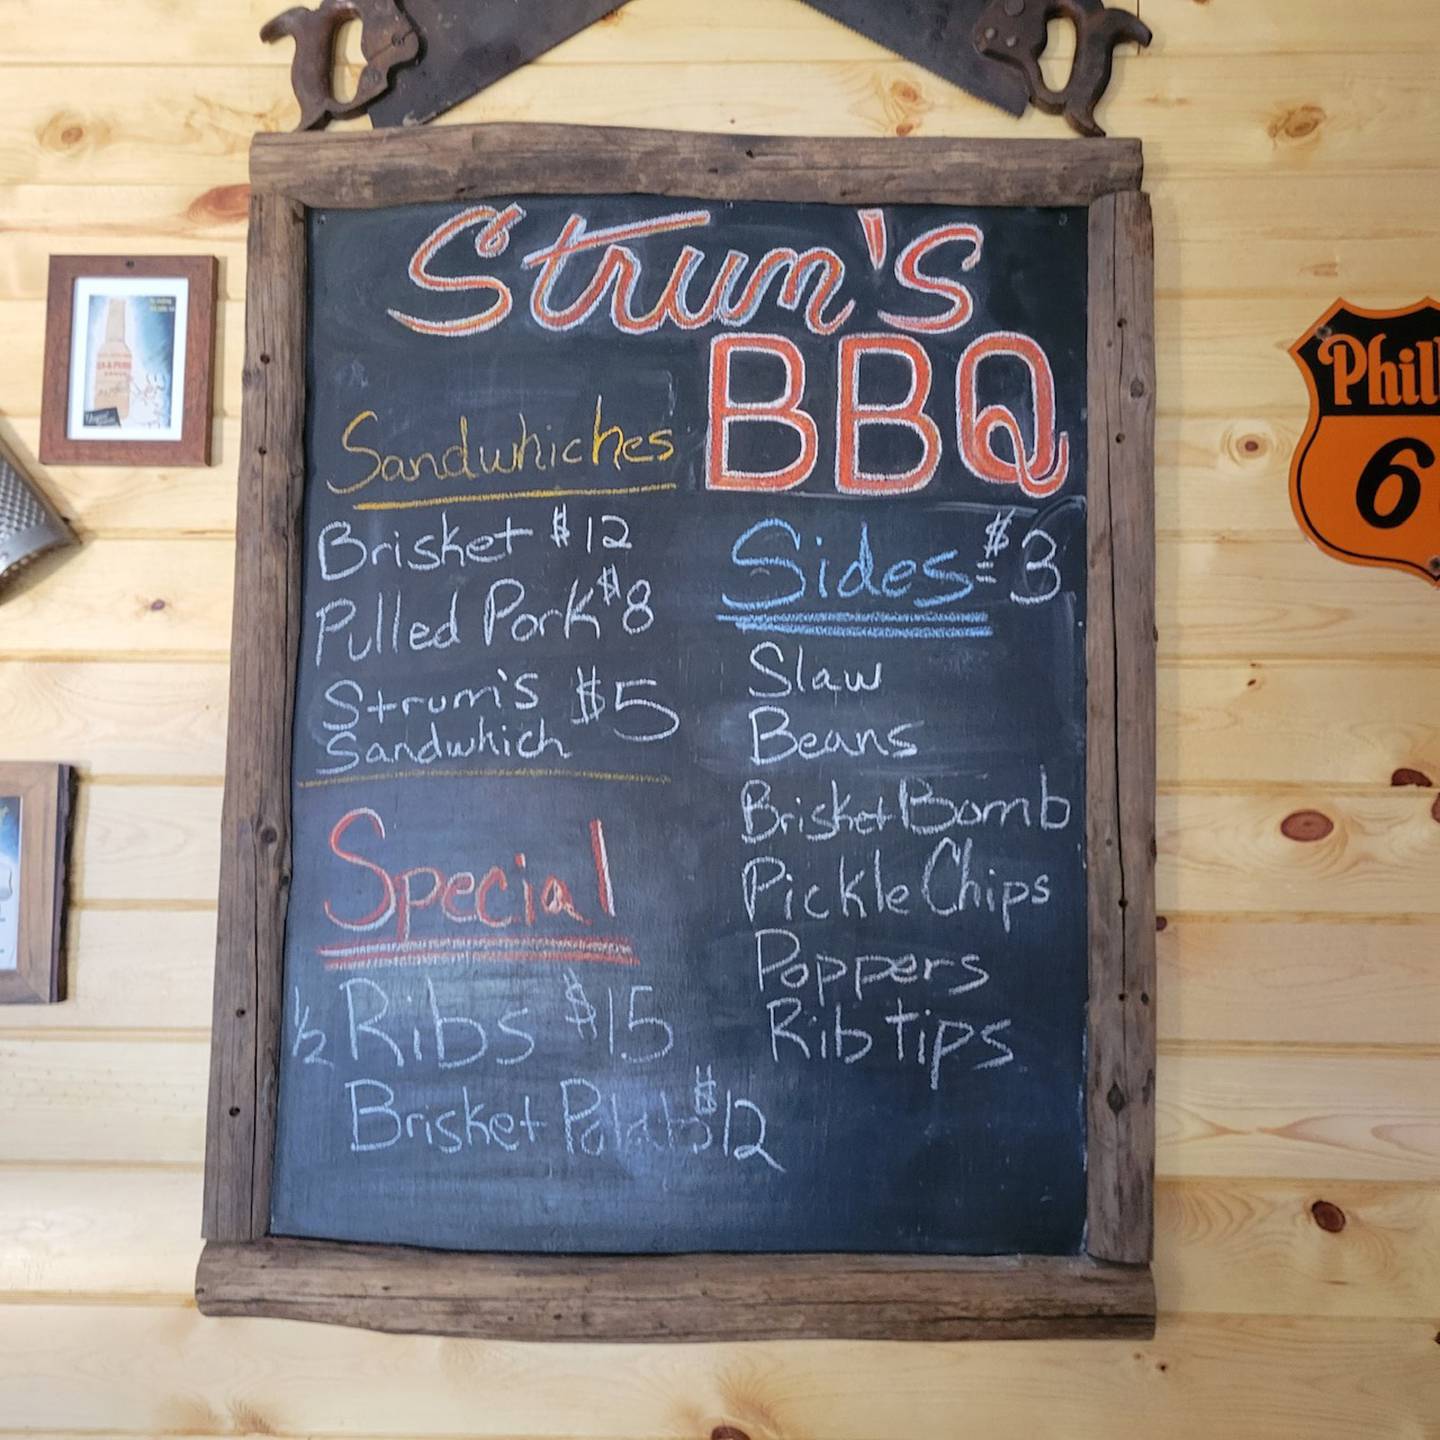 Strum's
BBQ
Sandwhiches
Brisket $12
Pulled Pork $8
Strum's $5
Sandwhich
Special
1/2 Ribs $15
Brisket Potato $12
Sides - $3
Slaw
Beans
Brisket Bomb
Pickle Chips
Poppers
Rib tips
Phill
6